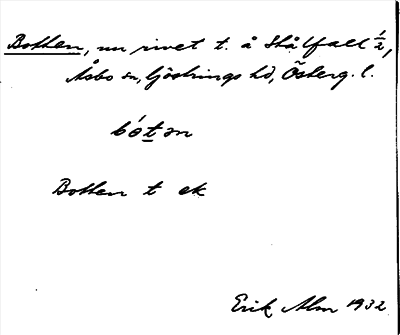 Botten, nu rivet t. å Stålfall ½,
Åsbo sn, Göstrings hd, Österg. l.
bótən
Botten t ek
Erik Alm 1932